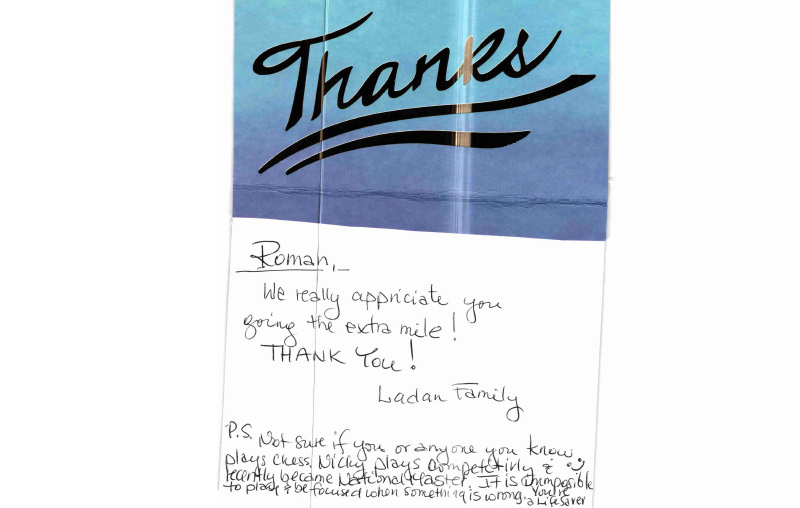 Thanks
Roman,
We really appriciate you
going the extra mile!
THANK You!
Ladan Family
P.S. Not sure if you or anyone you know
plays chess, Nicky plays competetivly &
recently became National Master. It is impossible
to play & be focused when something is wrong. You're
a Lifesaver